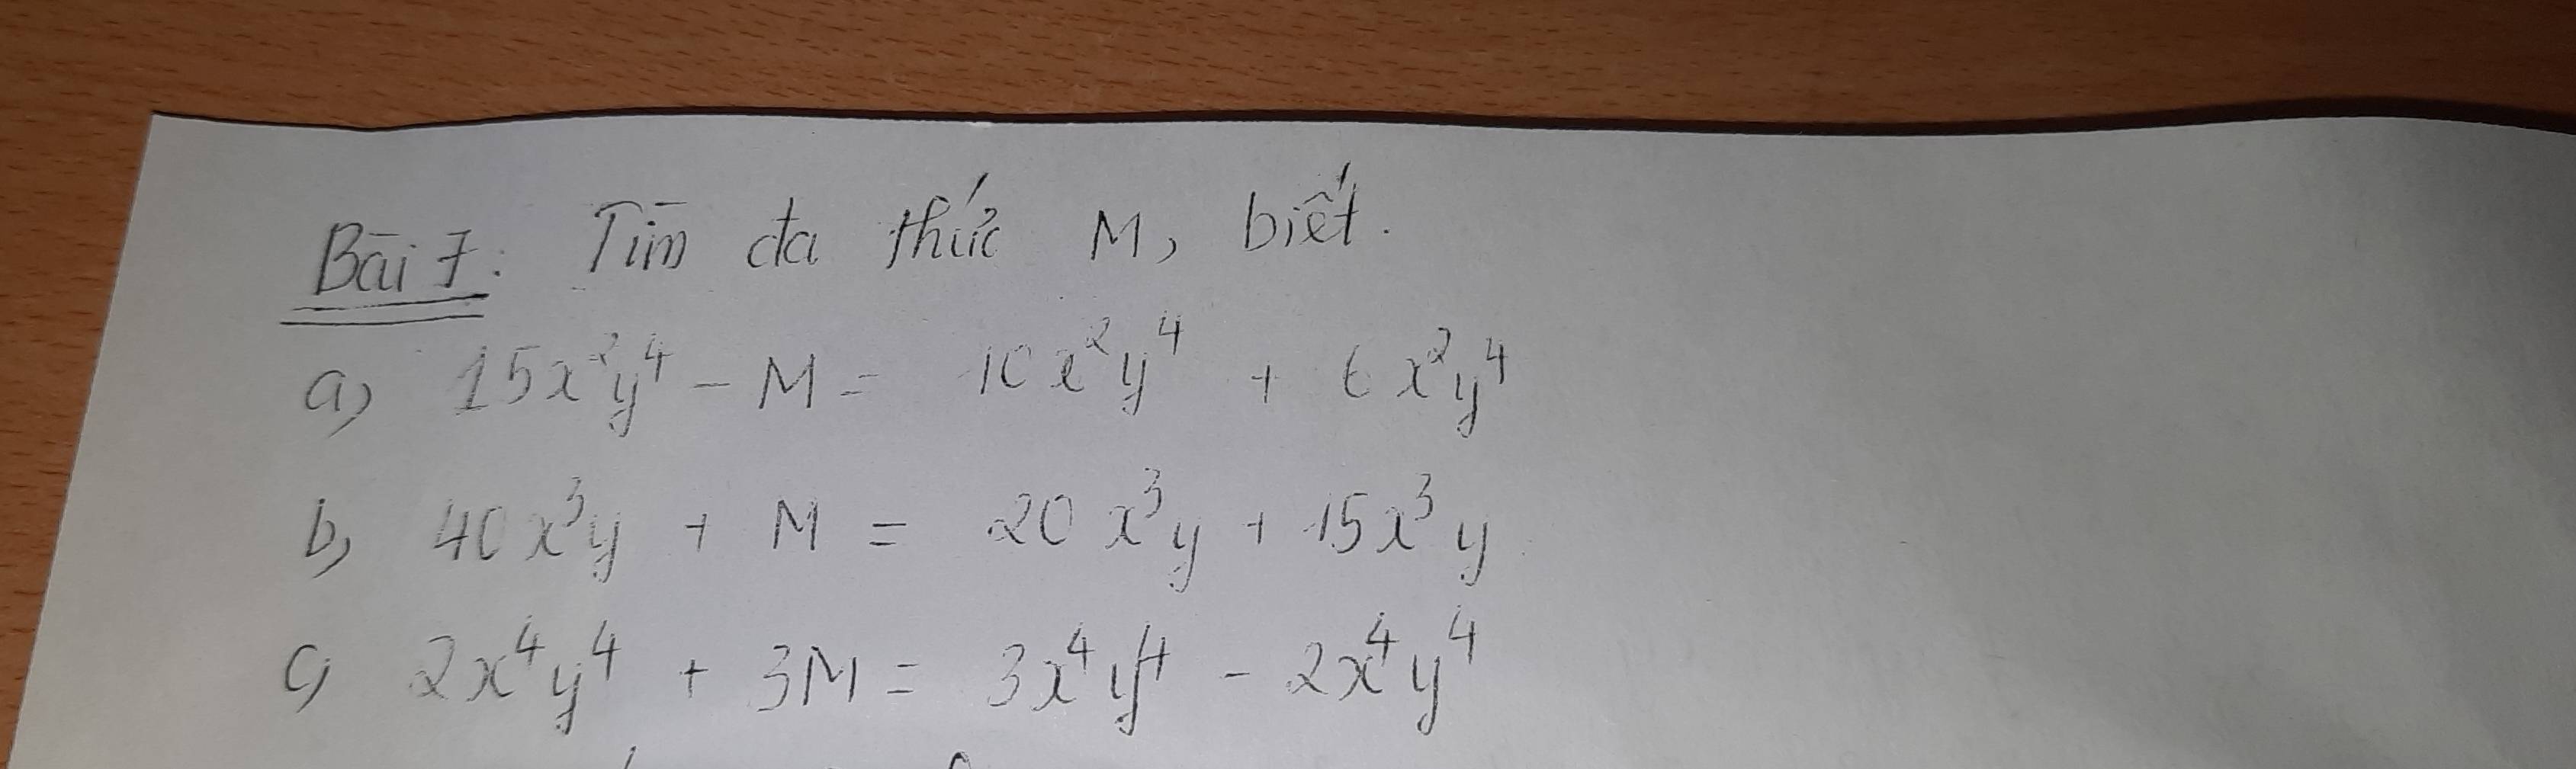 Bài 7: Tìm đa thức M, biết.
a) 15x²y⁴ - M = 10x²y⁴ + 6x²y⁴
b) 40x³y + M = 20x³y + 15x³y
c) 2x⁴y⁴ + 3M = 3x⁴y⁴ - 2x⁴y⁴